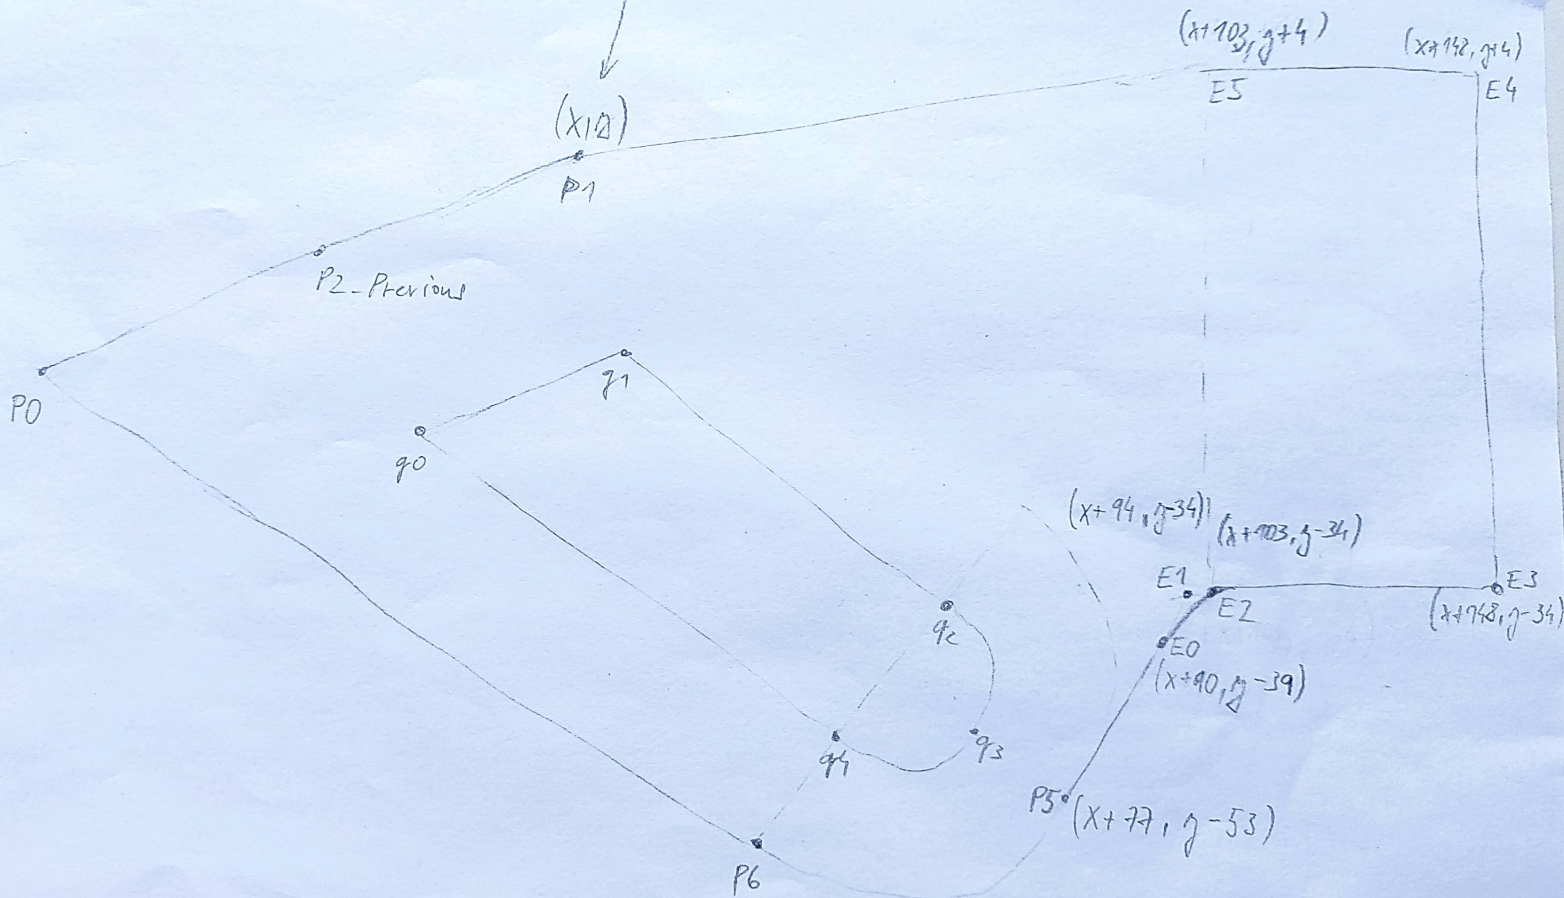 (x+103, y+4)
(x+148, y+4)
E5
E4
(x, y)
P1
P2_Previous
q1
P0
q0
(x+94, y-34)
(x+103, y-34)
E1
E3
E2
q2
(x+148, y-34)
E0
(x+90, y-39)
q3
q4
P5
(x+77, y-53)
P6